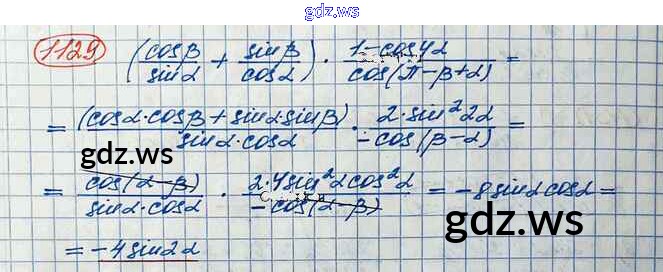 gdz.ws
1129 (cosβ/sinα + sinβ/cosα) · 1-cos4α/cos(π-β+α) =
= (cosα·cosβ+sinα sinβ)/sinα·cosα · 2·sin²2α/-cos(β-α) =
gdz.ws
= cos(α-β)/sinα·cosα · 2·4sin²αcos²α/-cos(α-β) = -8sinαcosα =
gdz.ws
= -4sin2α